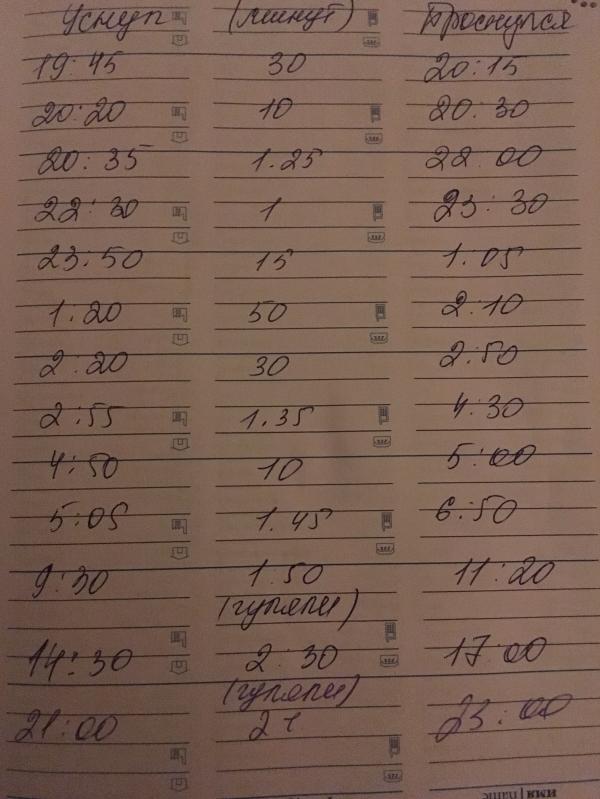 Уснул (минут) Проснулся
19:45 30 20:15
20:20 10 20:30
20:35 1.25 22:00
22:30 1 23:30
23:50 15 1:05
1:20 50 2:10
2:20 30 2:50
2:55 1.35 4:30
4:50 10 5:00
5:05 1.45 6:50
9:30 1:50 11:20
(гуляли)
14:30 2:30 17:00
(гуляли)
21:00 2ч 23:00
имя | name